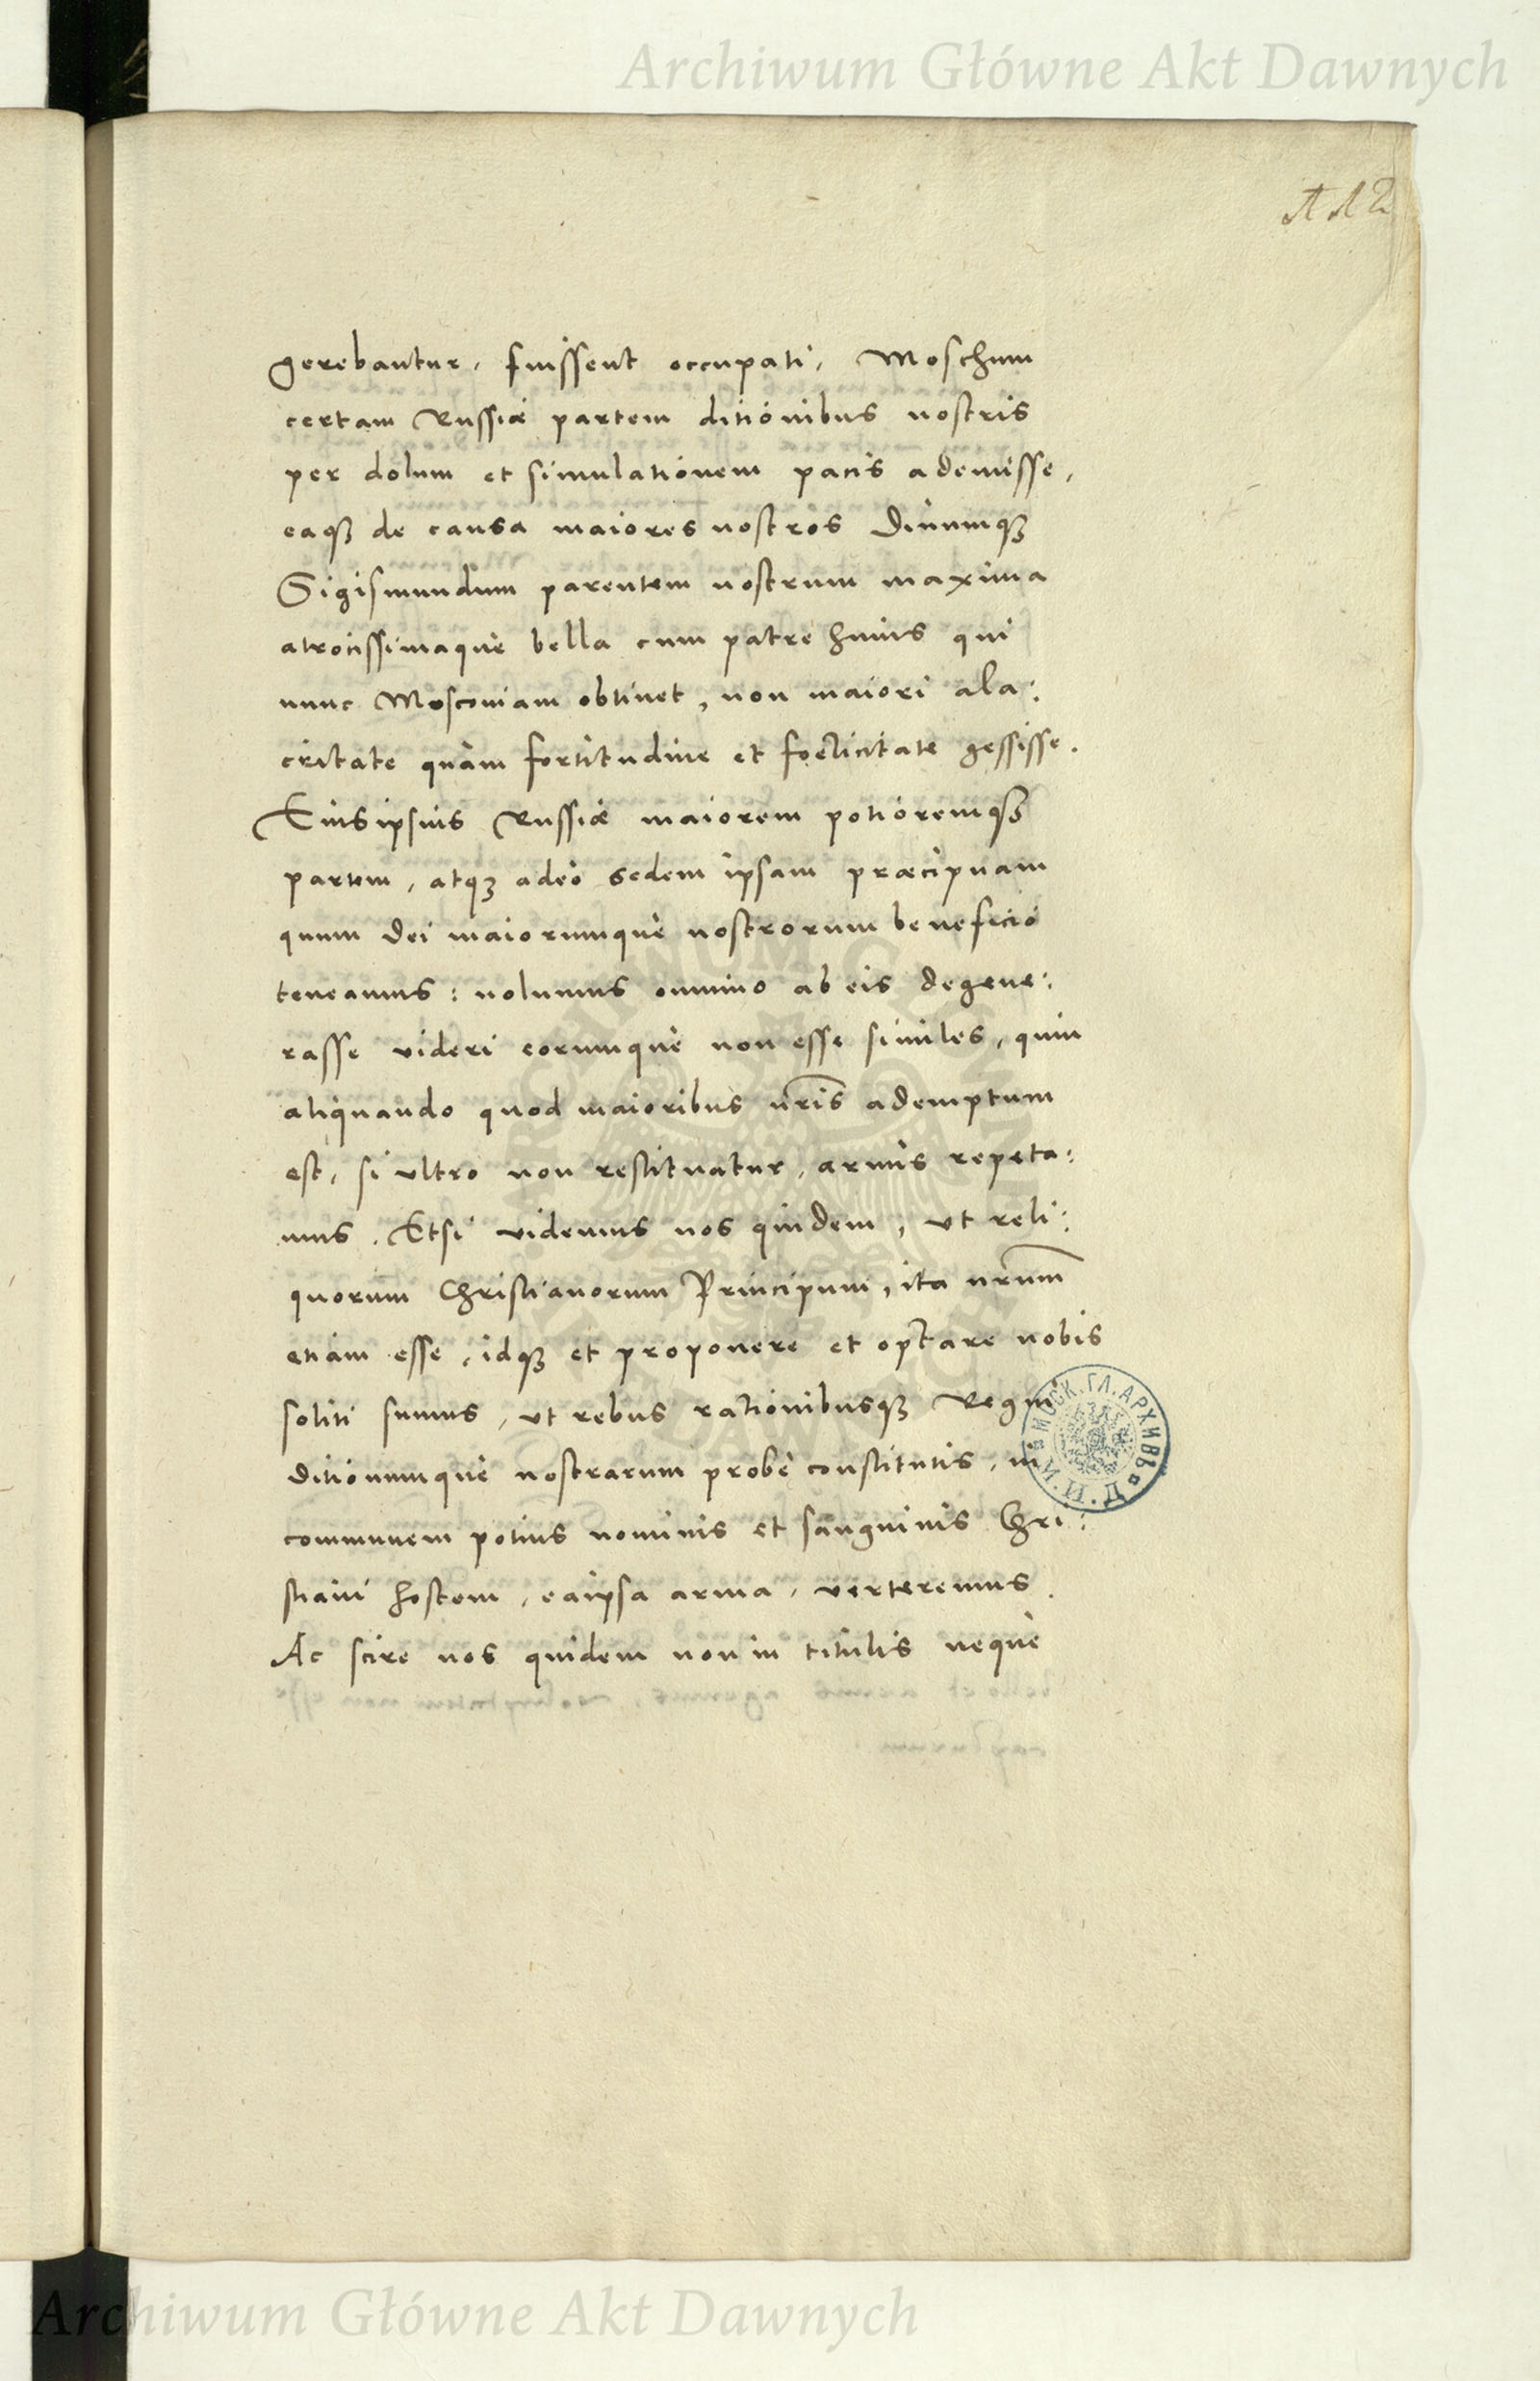 Archiwum Główne Akt Dawnych
gerebantur, fuissent occupati, Moschum
certam Russiæ partem ditionibus nostris
per dolum et simulationem pacis ademisse,
eaqꝫ de causa maiores nostros Diuumqꝫ
Sigismundum parentem nostrum maxima
atrocissimaquè bella cum patre huius qui
nunc Moscouiam obtinet, non maiori ala:
critate quàm fortitudine et foelicitate gessisse.
Eius ipsius Russiæ maiorem potioremqꝫ
partem, atqꝫ adeò sedem ipsam præcipuam
quum Dei maiorumquè nostrorum beneficio
teneamus: nolumus omnino ab eis degene:
rasse videri eorumquè non esse similes, quin
aliquando quod maioribus nr̃is ademptum
est, si vltro non restituatur, armis repeta:
mus. Etsi videmus nos quidem, vt reli:
quorum Christianorum Principum, ita nr̃um
etiam esse, idqꝫ et proponere et optare nobis
soliti sumus, vt rebus rationibusqꝫ Regni
ditionumquè nostrarum probè constitutis, in
МОСК. ГЛ. АРХИВЪ
communem potius nominis et sanguinis Chri:
stiani hostem, eaipsa arma, verteremus.
Ac scire nos quidem non in titulis nequè
Archiwum Główne Akt Dawnych